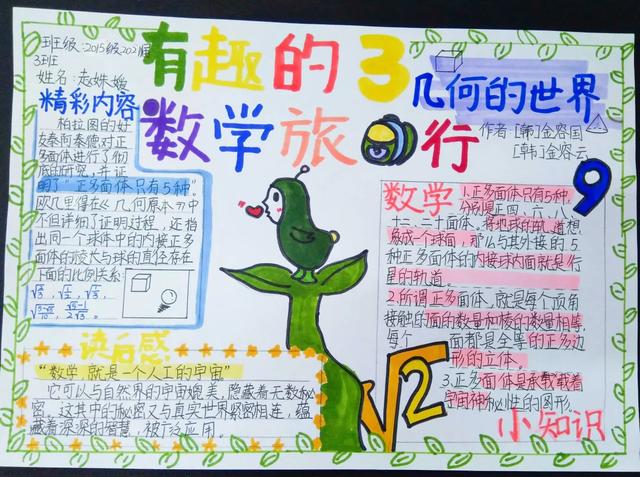 班级:2015级2021届
3班
姓名:赵姝媛
有趣的3
数学旅行
几何的世界
作者:[韩]金容国
[韩]金容云
精彩内容
柏拉图的好
友泰阿泰德对正
多面体进行了彻
底的研究,并证
明了“正多面体只有5种”。
欧几里得在《几何原本》中
不但详细了证明过程,还指
出同一个球体中的内接正多
面体的棱长与球的直径存在
下面的比例关系:
数学
1.正多面体只有5种,
分别是正四、六、八、
十二、二十面体。将地球的轨道想
象成一个球面,那么与其外接的5
种正多面体的内接球内面就是行
星的轨道。
2.所谓正多面体,就是每个顶角
接触的面的数量和棱的数量相等,
每个面都是全等的正多边
形的立体。
3.正多面体是承载载着
宇宙神秘性的图形。
小知识
9
√2
读后感
“数学就是一个人工的宇宙”
它可以与自然界的宇宙媲美,隐藏着无数秘
密。这其中的秘密又与真实世界紧密相连,蕴
藏着深深的智慧,被广泛应用。